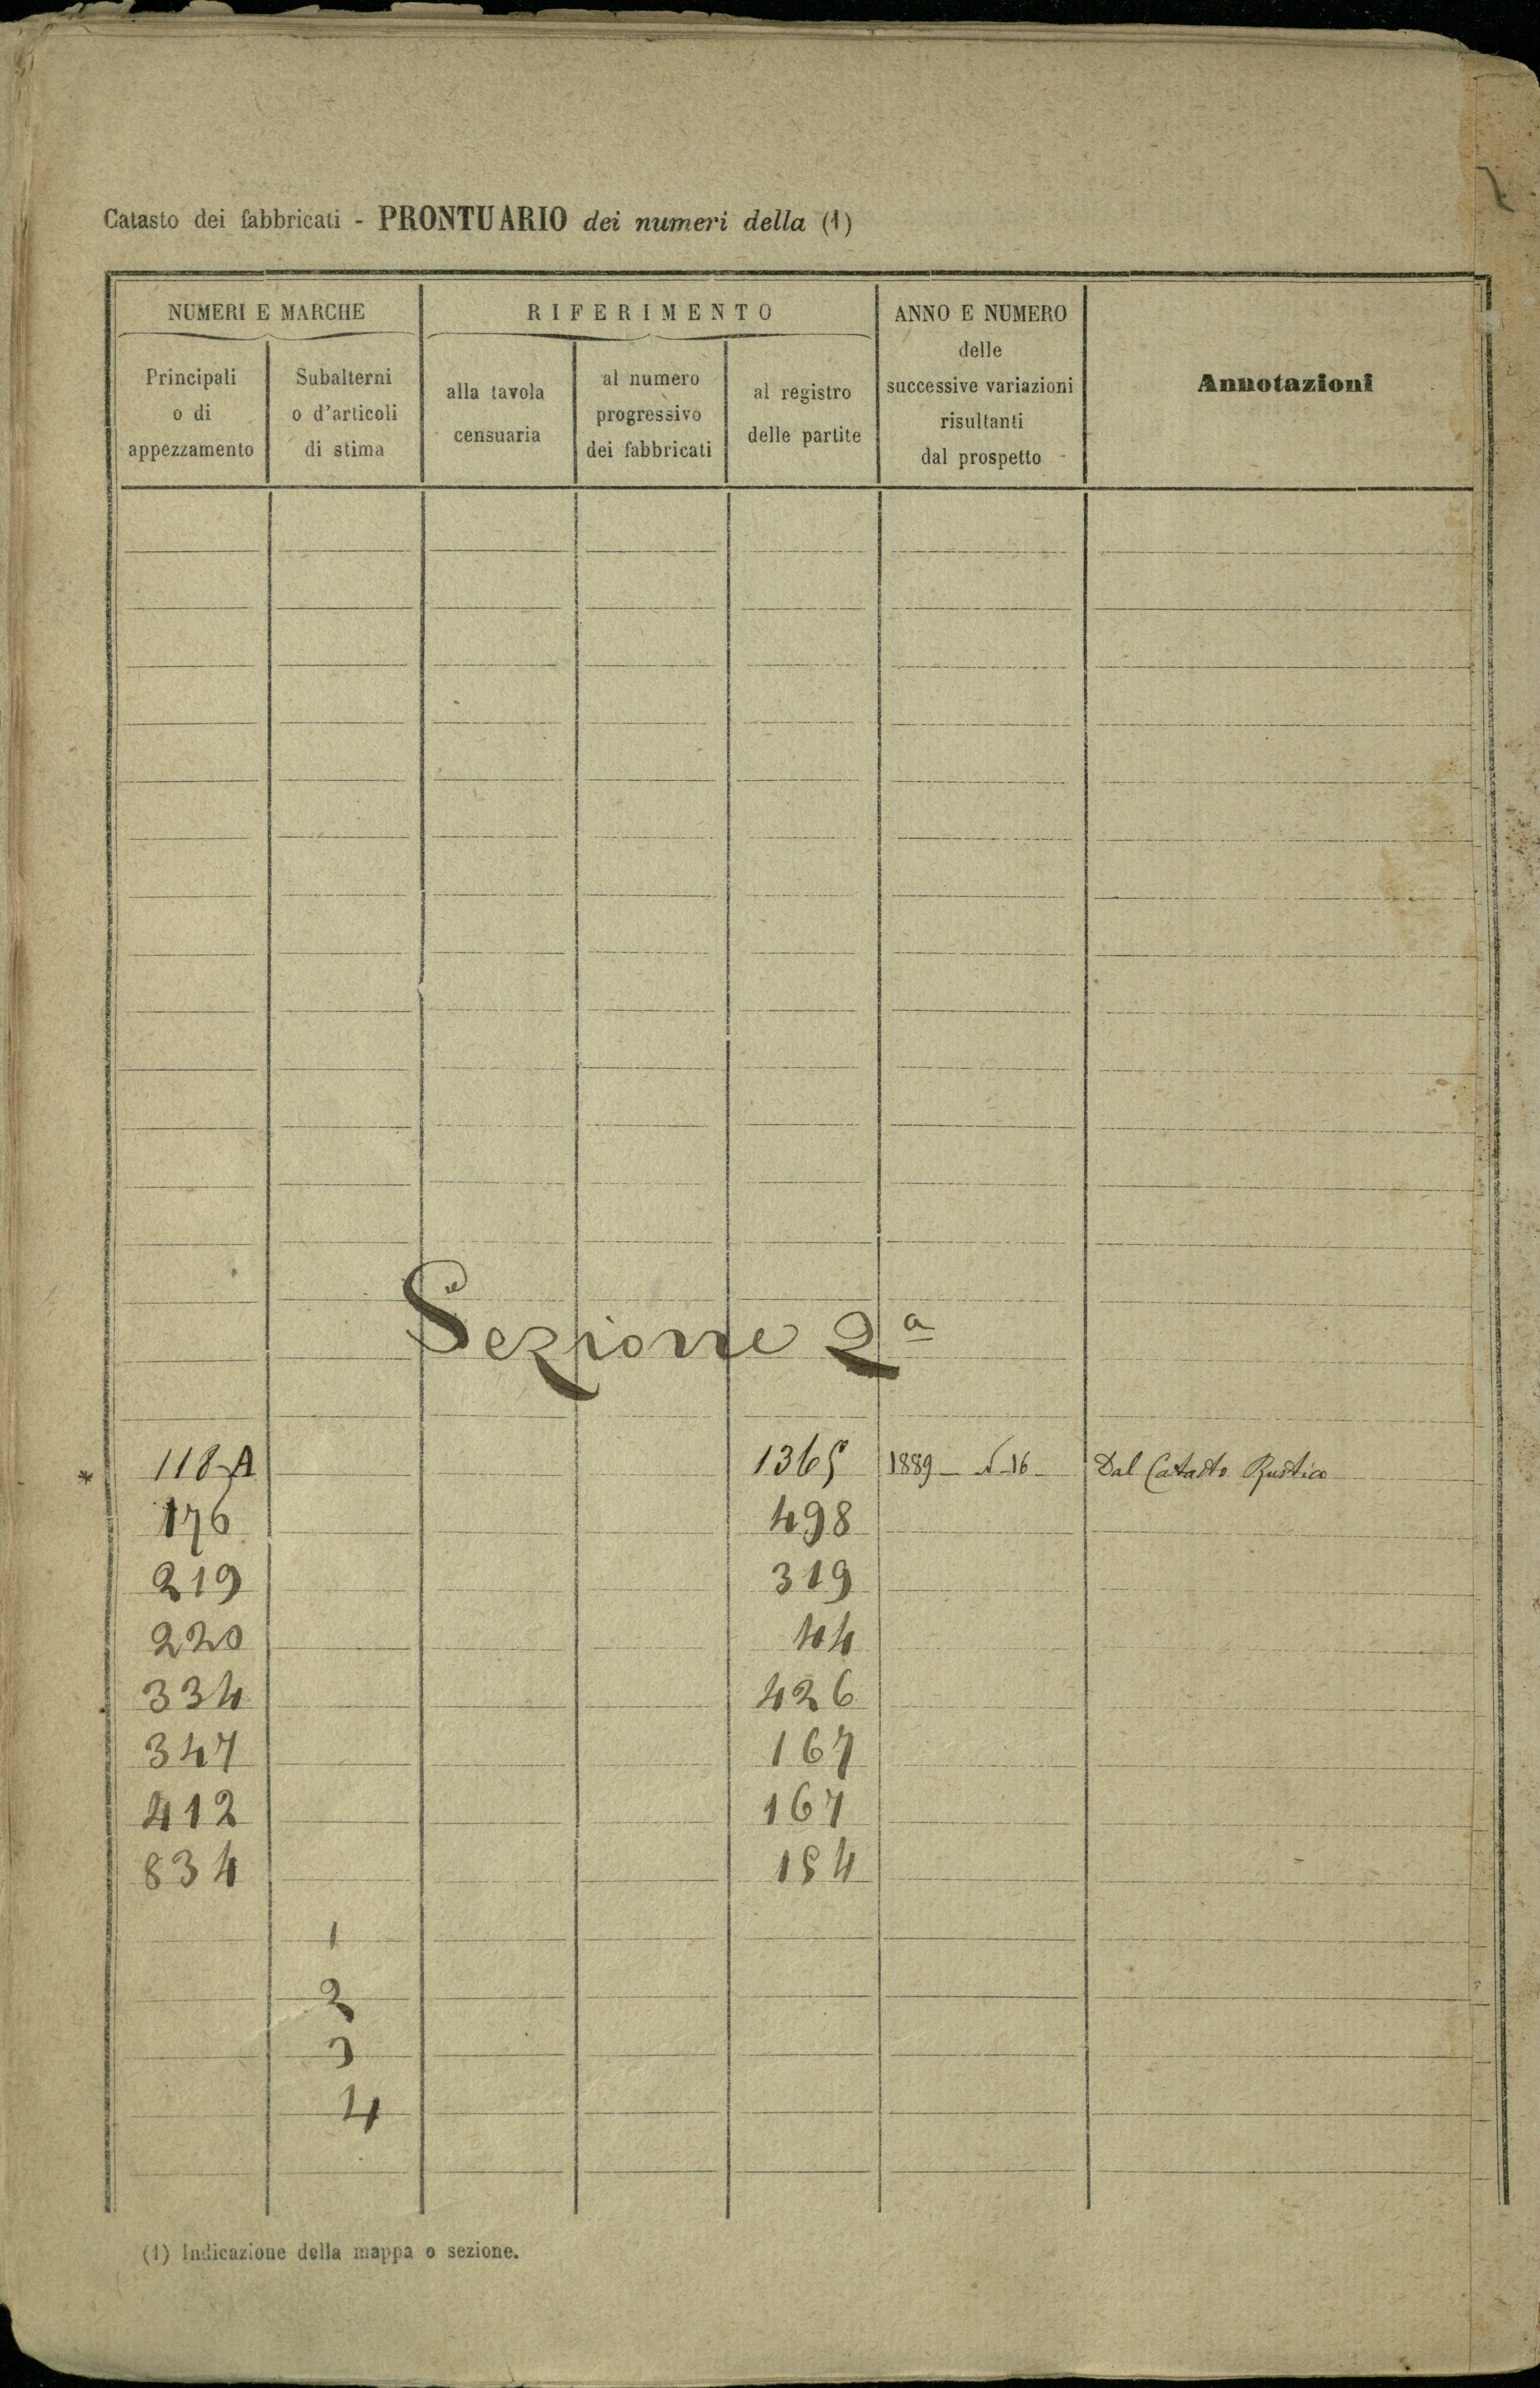 Catasto dei fabbricati - PRONTUARIO dei numeri della (1)
NUMERI E MARCHE
Principali
o di
appezzamento
Subalterni
o d'articoli
di stima
RIFERIMENTO
alla tavola
censuaria
al numero
progressivo
dei fabbricati
al registro
delle partite
ANNO E NUMERO
delle
successive variazioni
risultanti
dal prospetto
Annotazioni
Sezione 2a
* 118-A 1365 1889 - N - 16 Dal Catasto Rustico
176 498
219 319
220 44
334 426
347 167
412 167
834 154
1
2
3
4
(1) Indicazione della mappa o sezione.